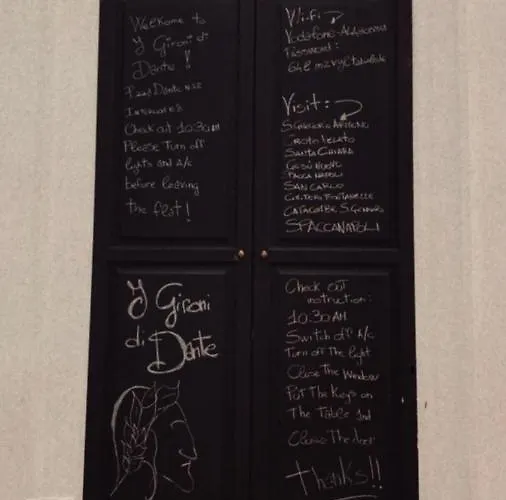 Welcome to
I Gironi di
Dante!
Check out 10:30 am
Please Turn off
lights and A/c
before leaving
the flat!
Wi-fi
Password:
Visit:
S. Gregorio Armeno
Santa Chiara
Gesù Nuovo
San Carlo
Cimitero Fontanelle
Catacombe S. Gennaro
SPACCANAPOLI
I Gironi
di Dante
Check out
instruction:
10:30 AM
Switch off A/c
Turn off The light
Close The Window
Put The Keys on
The Table and
Close The door
Thanks!!